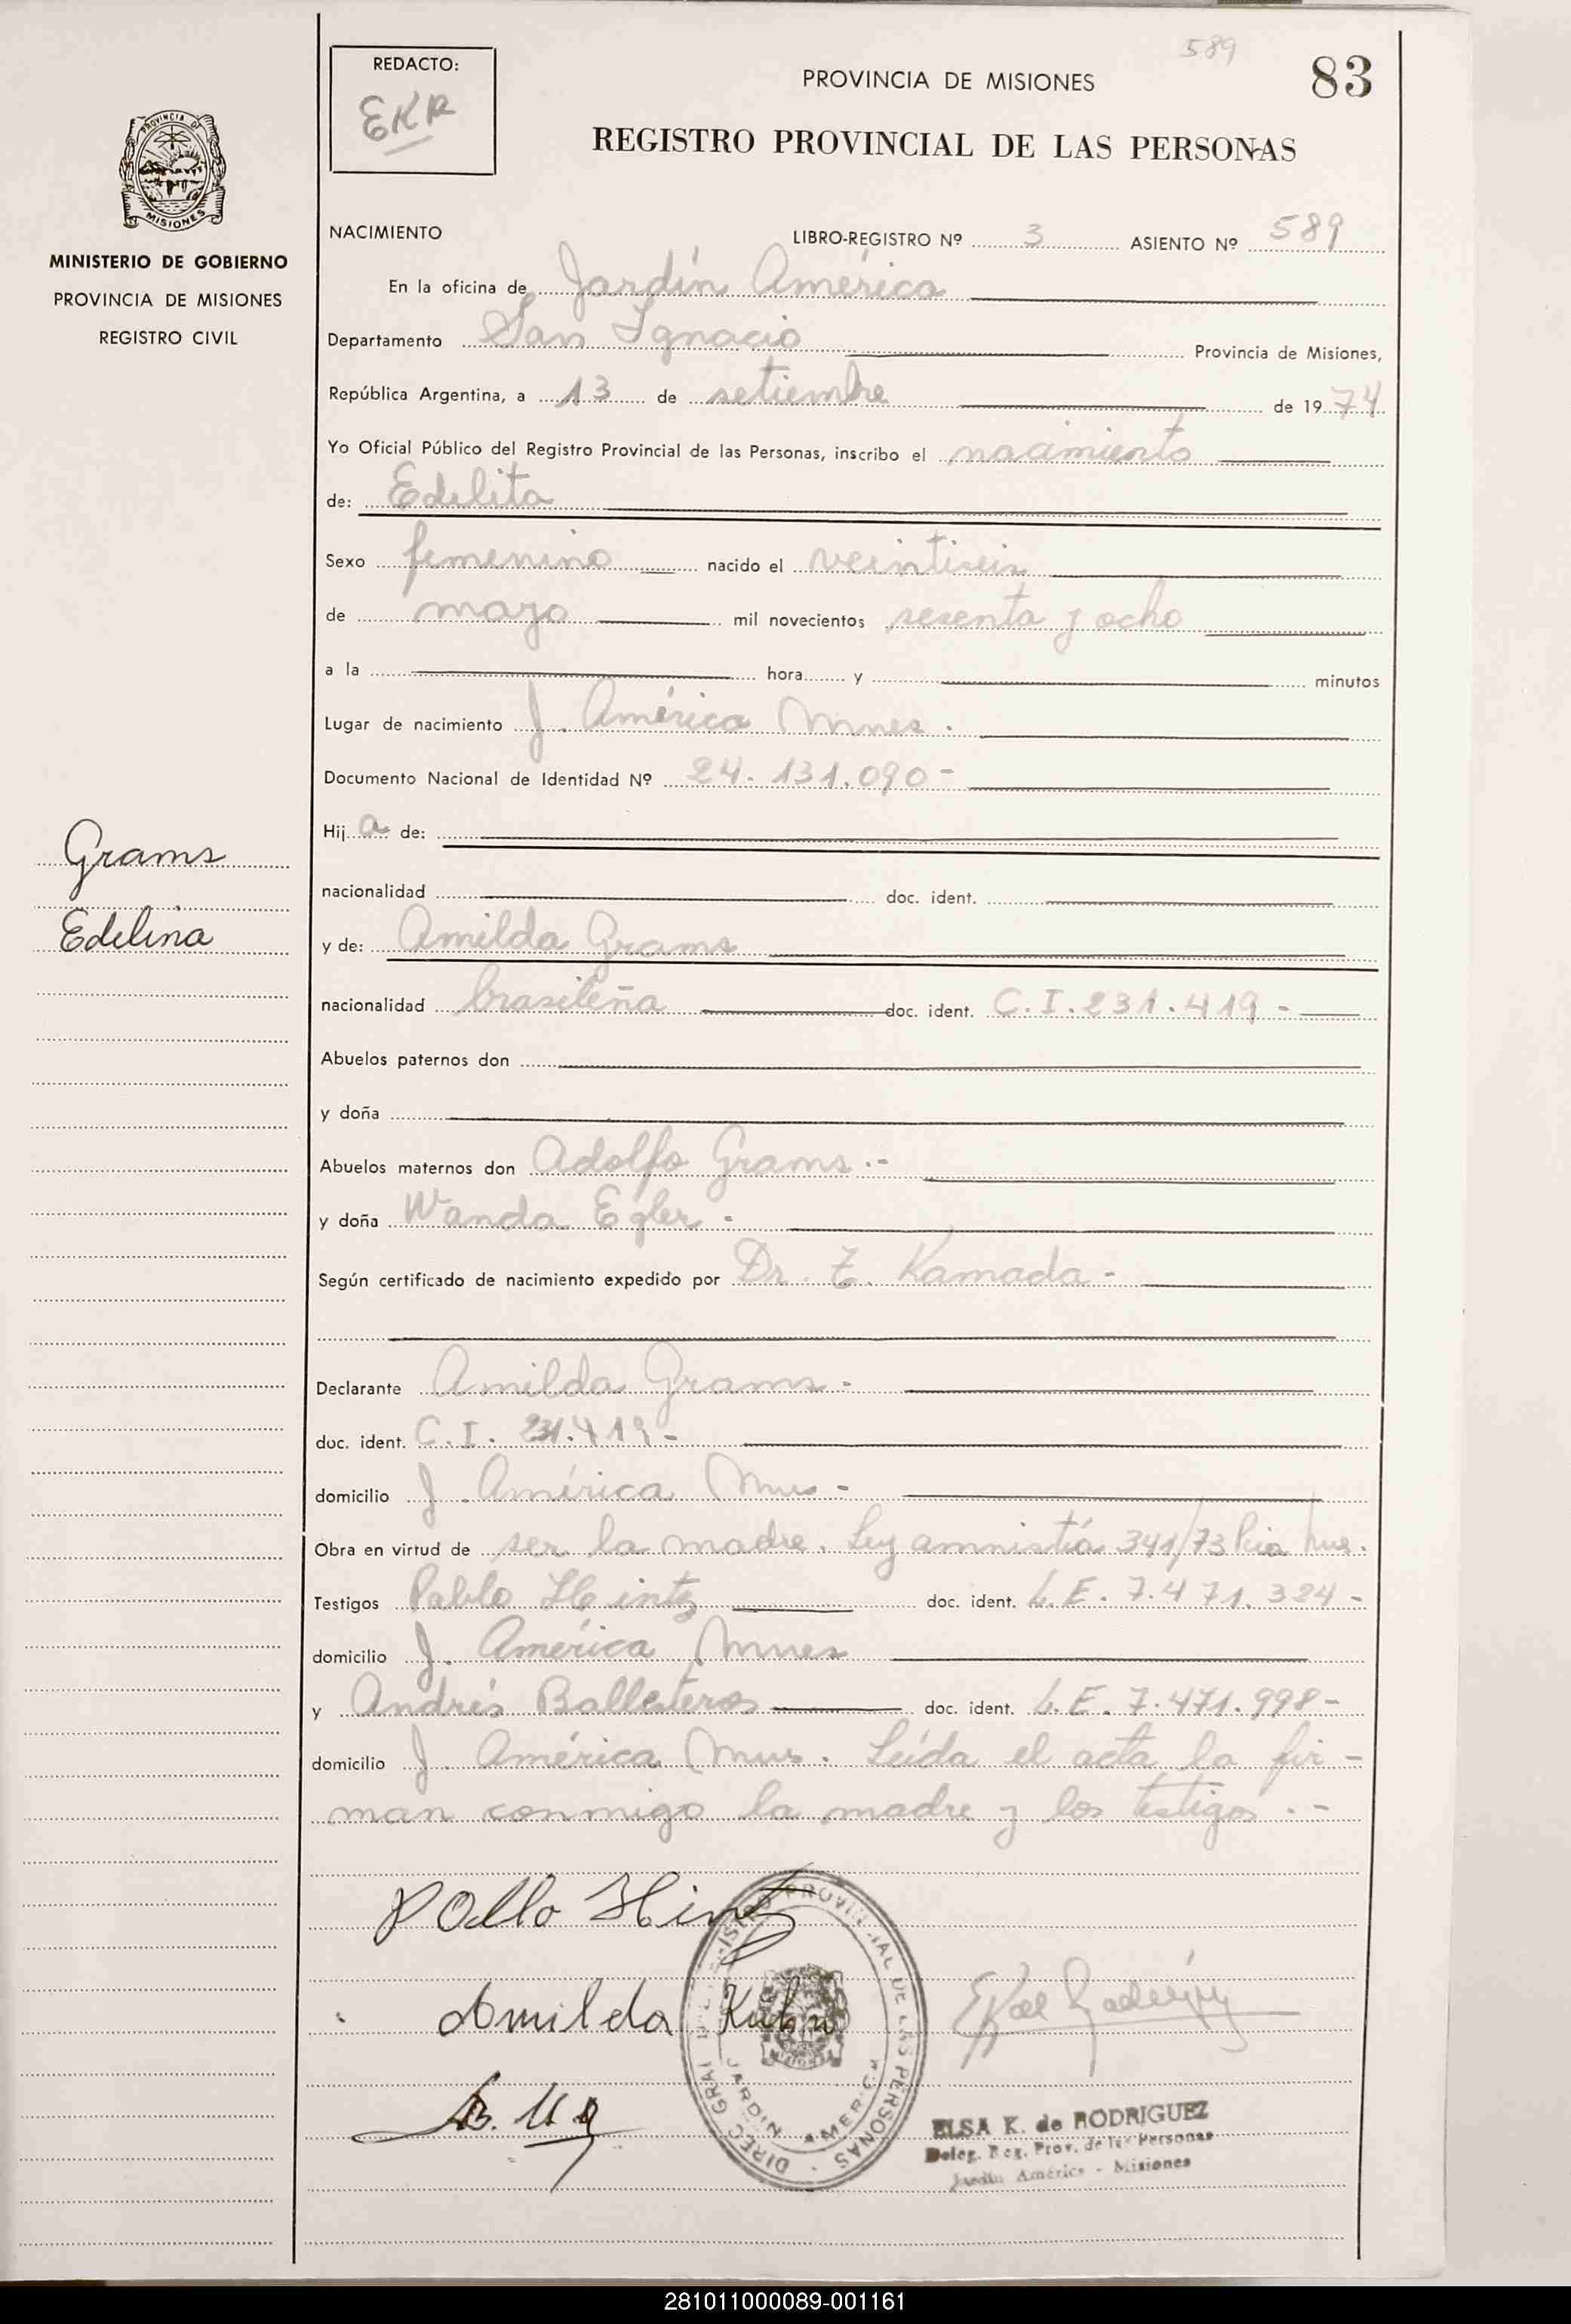 589
83
REDACTO:
EKR
PROVINCIA DE MISIONES
REGISTRO PROVINCIAL DE LAS PERSONAS
PROVINCIA DE
MISIONES
MINISTERIO DE GOBIERNO
PROVINCIA DE MISIONES
REGISTRO CIVIL
Grams
Edelina
NACIMIENTO LIBRO-REGISTRO Nº 3 ASIENTO Nº 589
En la oficina de Jardín América
Departamento San Ignacio Provincia de Misiones,
República Argentina, a 13 de setiembre de 1974
Yo Oficial Público del Registro Provincial de las Personas, inscribo el nacimiento
de: Edelita
Sexo femenino nacido el veintiseis
de mayo mil novecientos sesenta y ocho
a la hora y minutos
Lugar de nacimiento J. América Mnes.
Documento Nacional de Identidad Nº 24.131.090-
Hija de:
nacionalidad doc. ident.
y de: Amilda Grams
nacionalidad brasileña doc. ident. C.I. 231.419-
Abuelos paternos don
y doña
Abuelos maternos don Adolfo Grams.-
y doña Wanda Egler.-
Según certificado de nacimiento expedido por Dr. Z. Kamada-
Declarante Amilda Grams-
doc. ident. C.I. 231.419-
domicilio J. América Mnes-
Obra en virtud de ser la madre. Ley amnistía 341/73 Pcia Mnes.
Testigos Pablo Hintz doc. ident. L.E. 7.471.324-
domicilio J. América Mnes
y Andrés Ballesteros doc. ident. L.E. 7.471.998-
domicilio J. América Mnes. Leída el acta la fir-
man conmigo la madre y los testigos.-
Pablo Hintz
Amilda Kuhn
DIREC. GRAL. REGISTRO PROVINCIAL DE LAS PERSONAS
JARDIN AMERICA
ELSA K. de RODRIGUEZ
Deleg. Reg. Prov. de las Personas
Jardín América - Misiones
281011000089-001161